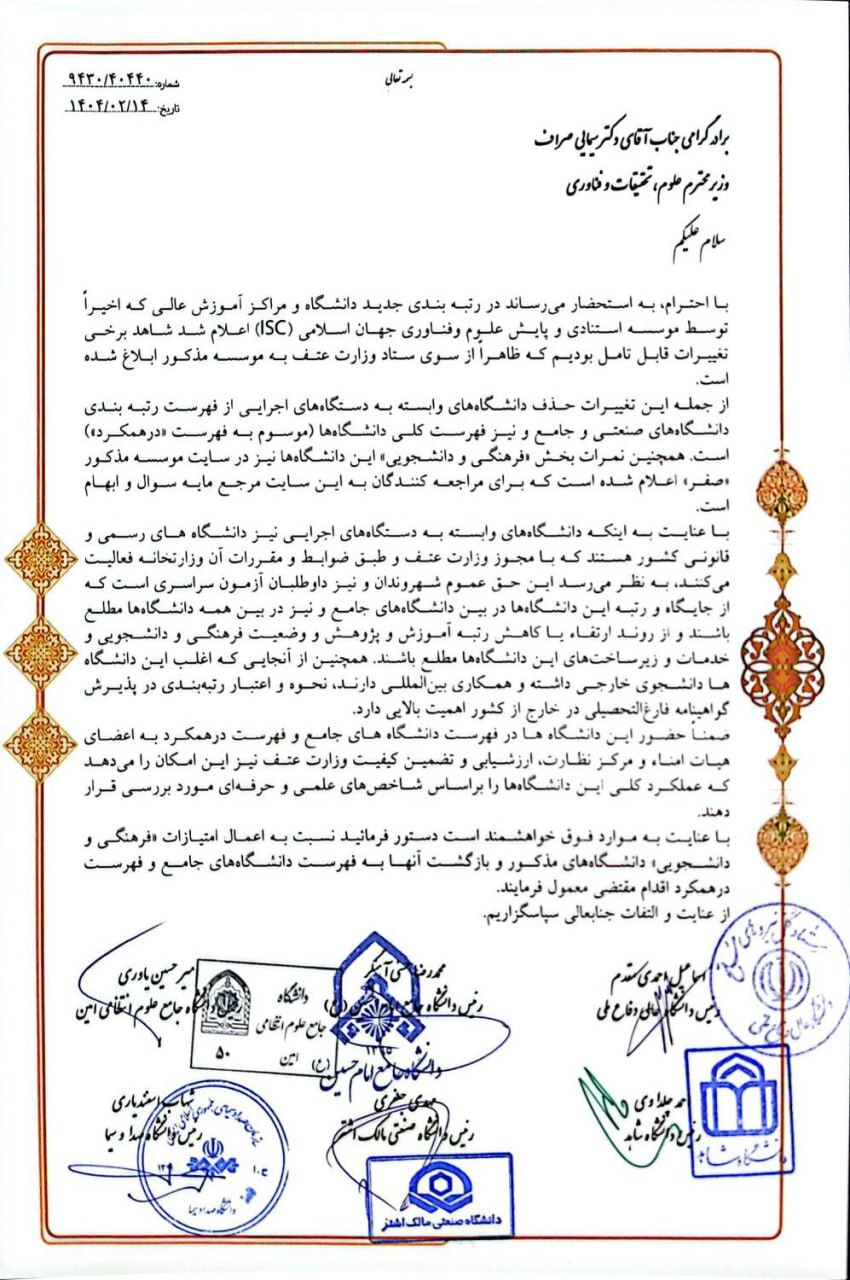 بسمه تعالی
شماره: ۹۴۳۰/۴۰۴۴۰
تاریخ: ۱۴۰۴/۰۲/۱۴
برادر گرامی جناب آقای دکتر سیمایی صراف
وزیر محترم علوم، تحقیقات و فناوری
سلام علیکم
با احترام، به استحضار می‌رساند در رتبه بندی جدید دانشگاه و مراکز آموزش عالی که اخیراً
توسط موسسه استنادی و پایش علوم وفناوری جهان اسلامی (ISC) اعلام شد شاهد برخی
تغییرات قابل تامل بودیم که ظاهراً از سوی ستاد وزارت عتف به موسسه مذکور ابلاغ شده
است.
از جمله این تغییرات حذف دانشگاه‌های وابسته به دستگاه‌های اجرایی از فهرست رتبه بندی
دانشگاه‌های صنعتی و جامع و نیز فهرست کلی دانشگاه‌ها (موسوم به فهرست «درهمکرد»)
است. همچنین نمرات بخش «فرهنگی و دانشجویی» این دانشگاه‌ها نیز در سایت موسسه مذکور
«صفر» اعلام شده است که برای مراجعه کنندگان به این سایت مرجع مایه سوال و ابهام
است.
با عنایت به اینکه دانشگاه‌های وابسته به دستگاه‌های اجرایی نیز دانشگاه های رسمی و
قانونی کشور هستند که با مجوز وزارت عتف و طبق ضوابط و مقررات آن وزارتخانه فعالیت
می‌کنند، به نظر می‌رسد این حق عموم شهروندان و نیز داوطلبان آزمون سراسری است که
از جایگاه و رتبه این دانشگاه‌ها در بین دانشگاه‌های جامع و نیز در بین همه دانشگاه‌ها مطلع
باشند و از روند ارتقاء یا کاهش رتبه آموزش و پژوهش و وضعیت فرهنگی و دانشجویی و
خدمات و زیرساخت‌های این دانشگاه‌ها مطلع باشند. همچنین از آنجایی که اغلب این دانشگاه
ها دانشجوی خارجی داشته و همکاری بین‌المللی دارند، نحوه و اعتبار رتبه‌بندی در پذیرش
گواهینامه فارغ‌التحصیلی در خارج از کشور اهمیت بالایی دارد.
ضمناً حضور این دانشگاه ها در فهرست دانشگاه های جامع و فهرست درهمکرد به اعضای
هیات امناء و مرکز نظارت، ارزشیابی و تضمین کیفیت وزارت عتف نیز این امکان را می‌دهد
که عملکرد کلی این دانشگاه‌ها را براساس شاخص‌های علمی و حرفه‌ای مورد بررسی قرار
دهند.
با عنایت به موارد فوق خواهشمند است دستور فرمائید نسبت به اعمال امتیازات «فرهنگی و
دانشجویی» دانشگاه‌های مذکور و بازگشت آنها به فهرست دانشگاه‌های جامع و فهرست
درهمکرد اقدام مقتضی معمول فرمایند.
از عنایت و التفات جنابعالی سپاسگزاریم.
اسماعیل احمدی مقدم
رئیس دانشگاه عالی دفاع ملی
محمدرضا حسنی آهنگر
رئیس دانشگاه جامع امام حسین (ع)
میر حسین یاوری
دانشگاه جامع علوم انتظامی امین
دانشگاه
جامع علوم انتظامی
امین
۵۰
دانشگاه جامع امام حسین (ع)
احمد
رئیس دانشگاه شاهد
دانشگاه شاهد
مهدی جعفری
رئیس دانشگاه صنعتی مالک اشتر
دانشگاه صنعتی مالک اشتر
شهاب اسفندیاری
رئیس دانشگاه صدا و سیما
دانشگاه صدا و سیما